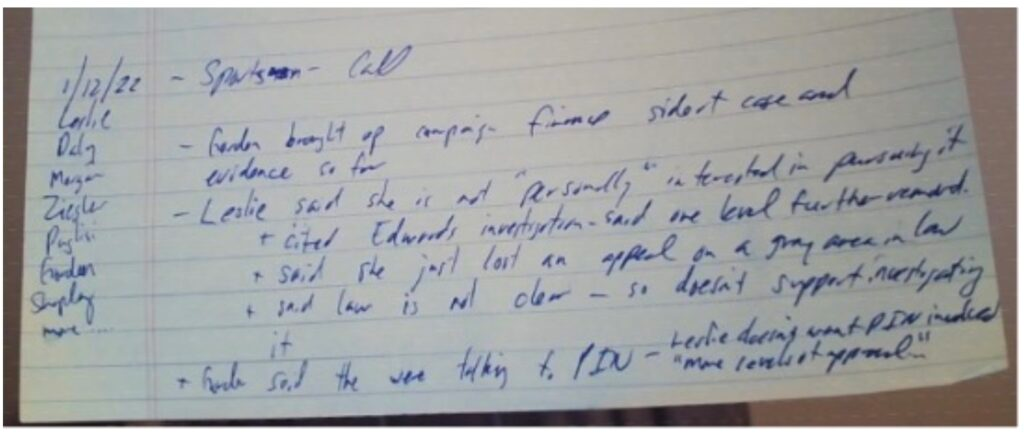 1/12/22 - Sportsman - Call
Leslie
Daly
Morgan
Ziegler
Puglisi
Gordon
Shapley
more ....
- Gordon brought up campaign finance side of case and
evidence so far
- Leslie said she is not "personally" interested in pursuing it
+ cited Edwards investigation - said one level further removed.
+ said she just lost an appeal on a gray area in law
+ said law is not clear - so doesn't support investigating
it
+ Gordon said the were talking to PIN - Leslie doesn't want PIN involved
"more levels of approval"